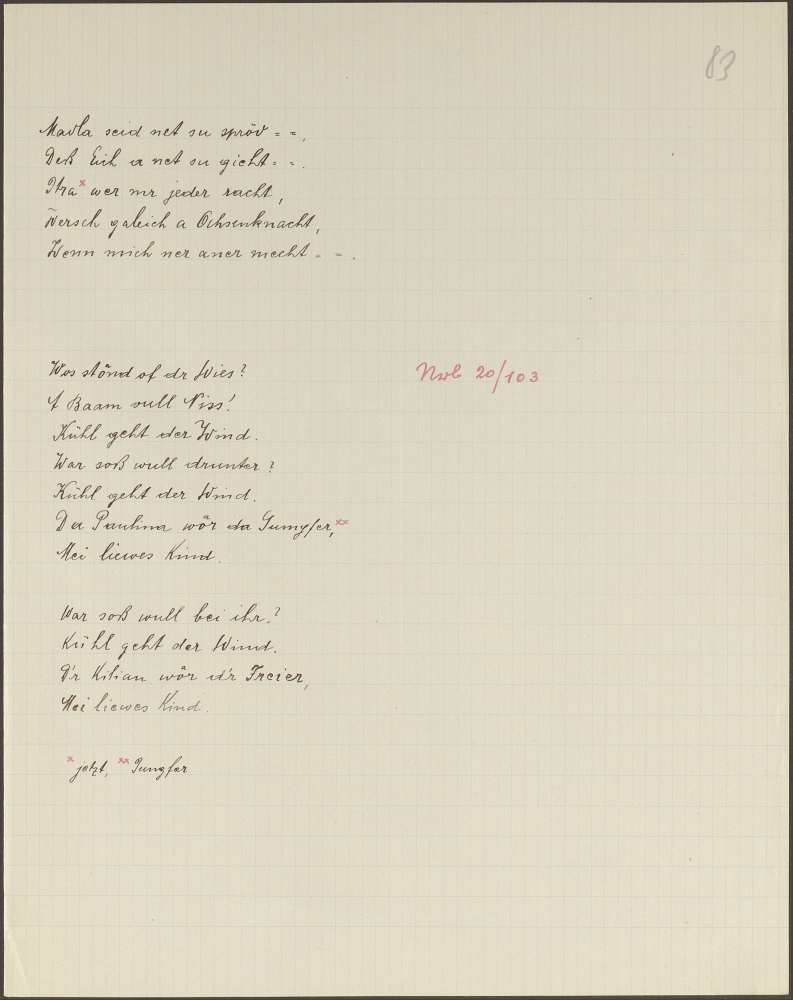 83
Madla seid net su spröd = =,
Deß Eich a net su gieht = =.
Itza x wer mr jeder racht,
Wersch galeich a Ochsenknacht,
Wenn mich ner aner mecht = =.
Wos stönd of dr Wies?
A Baam vull Niss!
Kühl geht der Wind.
War soß wull drunter?
Kühl geht der Wind.
Da Paulina wår da Gumgfer, xx
Mei liewes Kind.
Nwb 20/103
War soß wull bei ihr?
Kühl geht der Wind.
D'r Kilian wår d'r Freier,
Mei liewes Kind.
x jetzt, xx Jungfer